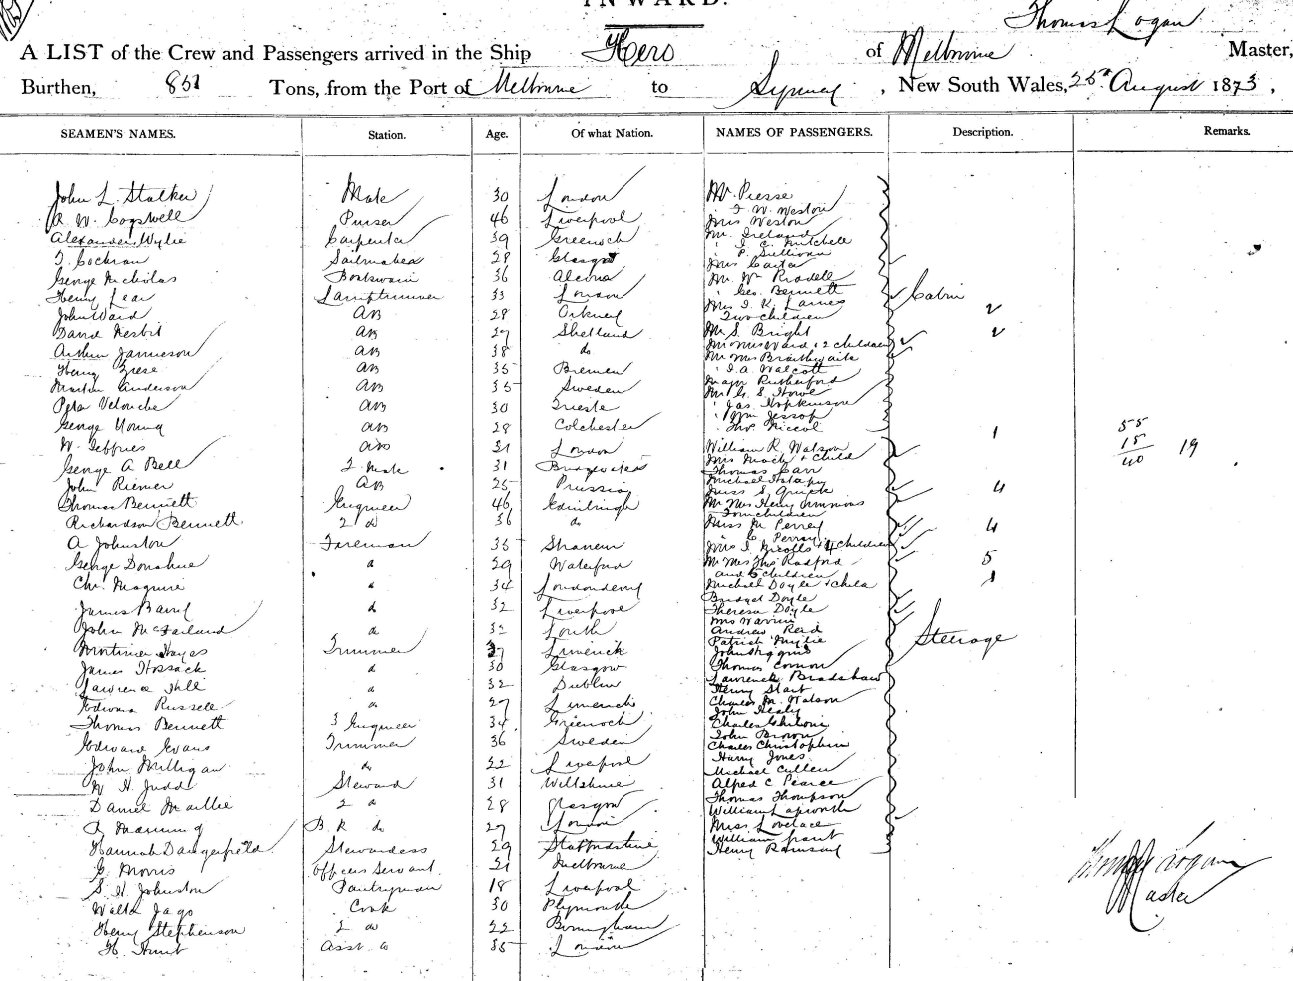 INWARD.
Thomas Logan
A LIST of the Crew and Passengers arrived in the Ship Hero of Melbourne Master,
Burthen, 851 Tons, from the Port of Melbourne to Sydney, New South Wales, 25th August 1873,
SEAMEN'S NAMES. Station. Age. Of what Nation. NAMES OF PASSENGERS. Description. Remarks.
John L. Stalker Mate 30 London
R W. Cogswell Purser 46 Liverpool
Alexander Wylie Carpenter 39 Greenock
T. Cockran Sailmaker 28 Glasgow
George Nicholas Boatswain 36
Henry Lear Lamptrimmer 33 London
John Ward AB 28 Orkney
David Nesbit AB 27 Shetland
Arthur Jamieson AB 38 do
Henry Frese AB 35 Bremen
Martin Anderson AB 35 Sweden
Peter Velouche AB 30 Trieste
George Young AB 28 Colchester
W. Jeffries AB 31 London
George A Bell 2 Mate 31 Bridgewater
John Riemer AB 25 Prussia
Thomas Bennett Engineer 46 Edinburgh
Richardson Bennett 2 do 36 do
A Johnston Fireman 35
George Donahue 29 Waterford
Chr. Maguire 34 Londonderry
James Baird 32 Liverpool
John McFarland 32 Louth
Mortimer Hayes Trimmer 27 Limerick
James Hossack 30 Glasgow
Lawrence Hill 32 Dublin
Edward Russell 27 Limerick
Thomas Bennett 3 Engineer 34 Greenock
Edward Evans Trimmer 36 Sweden
John Milligan 22 Liverpool
W. H. Judd Steward 31 Wiltshire
Daniel Maillie 2 d 28 Glasgow
A Manning B. R do 27 London
Hannah Dangerfield Stewardess 29 Staffordshire
G. Morris Officers Servant 21 Melbourne
S. H. Johnston Pantryman 18 Liverpool
Walter Jago Cook 30 Plymouth
Henry Stephenson 2 do 22 Birmingham
H. Hunt Asst do 35 London
Mr. Piesse
J. W. Weston
Miss Weston
Mr. Ireland
" J. C. Mitchell
" P. Sullivan
Mrs Carter
Mr Wm Riddell
" Geo. Bennett
Mrs J. K. Larnes
Two children
Mr S. Bright
Mr Mrs Ward & 2 children
Mr Mrs Braithwaite
" J. A. Walcott
Major Rutherford
Mr G. S. Howe
" Jas Hopkinson
" Wm Jessop
" Thos Niccol
Cabin
William R. Watson
Mrs Mack & Child
Thomas Carr
Michael
Miss S. Quick
Mr Mrs Henry Simmons
Four children
Miss M Perrey
" C. Perrey
Mrs J. Nicolls & 4 children
Mr Mrs Thos Radford
and 5 children
Michael Doyle & Child
Bridget Doyle
Theresa Doyle
Mrs Warrin
Andrew Reid
Patrick Mylie
John Higgins
Thomas Connor
Lawrence Bradshaw
Henry Start
Charles M. Watson
John Healy
Charles Ghiloni
John Brown
Charles Christophin
Harry Jones
Michael Cullen
Alfred C Pearce
Thomas Thompson
William Lapworth
Miss Lovelace
William Grant
Henry Ramsay
Steerage
1
4
4
5
1
55
15
40 19
Thomas Logan
Master